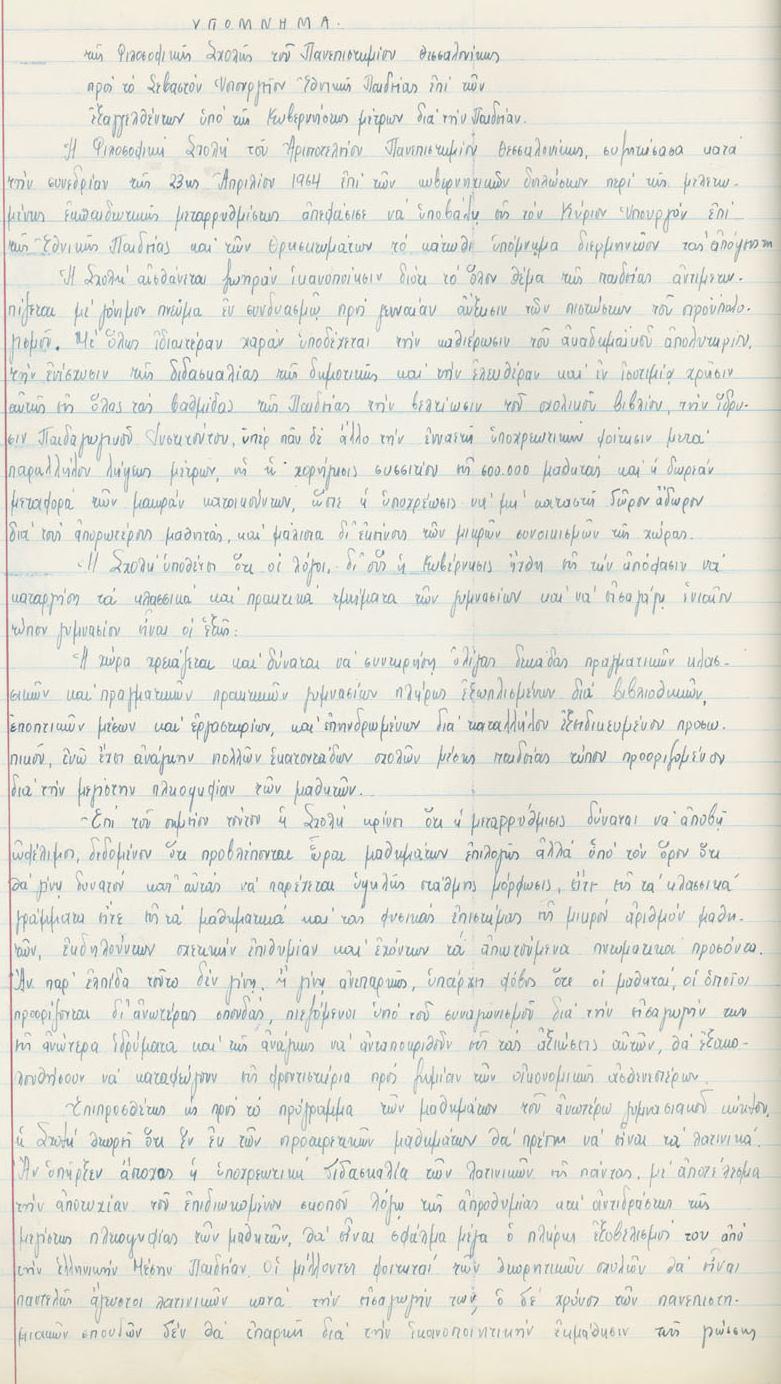 ΥΠΟΜΝΗΜΑ.
τῆς Φιλοσοφικῆς Σχολῆς τοῦ Πανεπιστημίου Θεσσαλονίκης
πρὸς τὸ Σεβαστὸν Ὑπουργεῖον Ἐθνικῆς Παιδείας ἐπὶ τῶν
ἐξαγγελθέντων ὑπὸ τῆς Κυβερνήσεως μέτρων διὰ τὴν Παιδείαν.
Ἡ Φιλοσοφικὴ Σχολὴ τοῦ Ἀριστοτελείου Πανεπιστημίου Θεσσαλονίκης, συζητήσασα κατὰ
τὴν συνεδρίαν τῆς 23ης Ἀπριλίου 1964 ἐπὶ τῶν κυβερνητικῶν δηλώσεων περὶ τῆς μελετω-
μένης ἐκπαιδευτικῆς μεταρρυθμίσεως ἀπεφάσισε νὰ ὑποβάλῃ εἰς τὸν Κύριον Ὑπουργὸν ἐπὶ
τῆς Ἐθνικῆς Παιδείας καὶ τῶν Θρησκευμάτων τὸ κάτωθι ὑπόμνημα διερμηνεῦον τὰς ἀπόψεις της
Ἡ Σχολὴ αἰσθάνεται ζωηρὰν ἱκανοποίησιν διότι τὸ ὅλον θέμα τῆς παιδείας ἀντιμετω-
πίζεται μὲ γόνιμον πνεῦμα ἐν συνδυασμῷ πρὸς γενναίαν αὔξησιν τῶν πιστώσεων τοῦ προϋπολο-
γισμοῦ. Μὲ ὅλως ἰδιαιτέραν χαρὰν ὑποδέχεται τὴν καθιέρωσιν τοῦ ἀκαδημαϊκοῦ ἀπολυτηρίου,
τὴν ἐνίσχυσιν τῆς διδασκαλίας τῆς δημοτικῆς καὶ τὴν ἐλευθέραν καὶ ἐν ἰσοτιμίᾳ χρῆσιν
αὐτῆς εἰς ὅλας τὰς βαθμίδας τῆς Παιδείας τὴν βελτίωσιν τοῦ σχολικοῦ βιβλίου, τὴν ἵδρυ-
σιν Παιδαγωγικοῦ Ἰνστιτούτου, ὑπὲρ πᾶν δὲ ἄλλο τὴν ἐνναετῆ ὑποχρεωτικὴν φοίτησιν μετὰ
παραλλήλου λήψεως μέτρων, ὡς ἡ χορήγησις συσσιτίου εἰς 600.000 μαθητὰς καὶ ἡ δωρεὰν
μεταφορὰ τῶν μακρὰν κατοικούντων, ὥστε ἡ ὑποχρέωσις νὰ μὴ καταστῇ δῶρον ἄδωρον
διὰ τοὺς ἀπορωτέρους μαθητάς, καὶ μάλιστα δι' ἐκείνους τῶν μικρῶν συνοικισμῶν τῆς χώρας.
Ἡ Σχολὴ ὑποθέτει ὅτι οἱ λόγοι, δι' οὓς ἡ Κυβέρνησις ἤχθη εἰς τὴν ἀπόφασιν νὰ
καταργήσῃ τὰ κλασσικὰ καὶ πρακτικὰ τμήματα τῶν γυμνασίων καὶ νὰ εἰσαγάγῃ ἑνιαῖον
τύπον γυμνασίου εἶναι οἱ ἑξῆς:
Ἡ χώρα χρειάζεται καὶ δύναται νὰ συντηρήσῃ ὀλίγας δεκάδας πραγματικῶν κλασ-
σικῶν καὶ πραγματικῶν πρακτικῶν γυμνασίων πλήρως ἐξωπλισμένων διὰ βιβλιοθηκῶν,
ἐποπτικῶν μέσων καὶ ἐργαστηρίων, καὶ ἐπηνδρωμένων διὰ καταλλήλου ἐξειδικευμένου προσω-
πικοῦ, ἐνῷ ἔχει ἀνάγκην πολλῶν ἑκατοντάδων σχολῶν μέσης παιδείας τύπου προοριζομένου
διὰ τὴν μεγίστην πλειοψηφίαν τῶν μαθητῶν.
Ἐπὶ τοῦ σημείου τούτου ἡ Σχολὴ κρίνει ὅτι ἡ μεταρρύθμισις δύναται νὰ ἀποβῇ
ὠφέλιμος, δεδομένου ὅτι προβλέπονται ὧραι μαθημάτων ἐπιλογῆς ἀλλὰ ὑπὸ τὸν ὅρον ὅτι
θὰ γίνῃ δυνατὸν κατ' αὐτὰς νὰ παρέχεται ὑψηλῆς στάθμης μόρφωσις, εἴτε εἰς τὰ κλασσικὰ
γράμματα εἴτε εἰς τὰ μαθηματικὰ καὶ τὰς φυσικὰς ἐπιστήμας εἰς μικρὸν ἀριθμὸν μαθη-
τῶν, ἐκδηλούντων σχετικὴν ἐπιθυμίαν καὶ ἐχόντων τὰ ἀπαιτούμενα πνευματικὰ προσόντα.
Ἂν παρ' ἐλπίδα τοῦτο δὲν γίνῃ, ἢ γίνῃ ἀνεπαρκῶς, ὑπάρχει φόβος ὅτι οἱ μαθηταί, οἱ ὁποῖοι
προορίζονται δι' ἀνωτέρας σπουδάς, πιεζόμενοι ὑπὸ τοῦ συναγωνισμοῦ διὰ τὴν εἰσαγωγήν των
εἰς ἀνώτερα ἱδρύματα καὶ τῆς ἀνάγκης νὰ ἀνταποκριθοῦν εἰς τὰς ἀξιώσεις αὐτῶν, θὰ ἐξακο-
λουθήσουν νὰ καταφεύγουν εἰς φροντιστήρια πρὸς ζημίαν τῶν οἰκονομικῶς ἀσθενεστέρων.
Ἐπιπροσθέτως ὡς πρὸς τὸ πρόγραμμα τῶν μαθημάτων τοῦ ἀνωτέρω γυμνασιακοῦ κύκλου,
ἡ Σχολὴ θεωρεῖ ὅτι ἓν ἐκ τῶν προαιρετικῶν μαθημάτων θὰ πρέπει νὰ εἶναι τὰ λατινικά.
Ἂν ὑπῆρξεν ἄστοχος ἡ ὑποχρεωτικὴ διδασκαλία τῶν λατινικῶν εἰς πάντας, μὲ ἀποτέλεσμα
τὴν ἀποτυχίαν τοῦ ἐπιδιωκομένου σκοποῦ λόγῳ τῆς ἀπροθυμίας καὶ ἀντιδράσεως τῆς
μεγίστης πλειοψηφίας τῶν μαθητῶν, θὰ εἶναι σφάλμα μέγα ὁ πλήρης ἐξοβελισμός του ἀπὸ
τὴν ἑλληνικὴν Μέσην Παιδείαν. Οἱ μέλλοντες φοιτηταὶ τῶν θεωρητικῶν σχολῶν θὰ εἶναι
παντελῶς ἄγευστοι λατινικῶν κατὰ τὴν εἰσαγωγήν των, ὁ δὲ χρόνος τῶν πανεπιστη-
μιακῶν σπουδῶν δὲν θὰ ἐπαρκῇ διὰ τὴν ἱκανοποιητικὴν ἐκμάθησιν τῆς γλώσσης